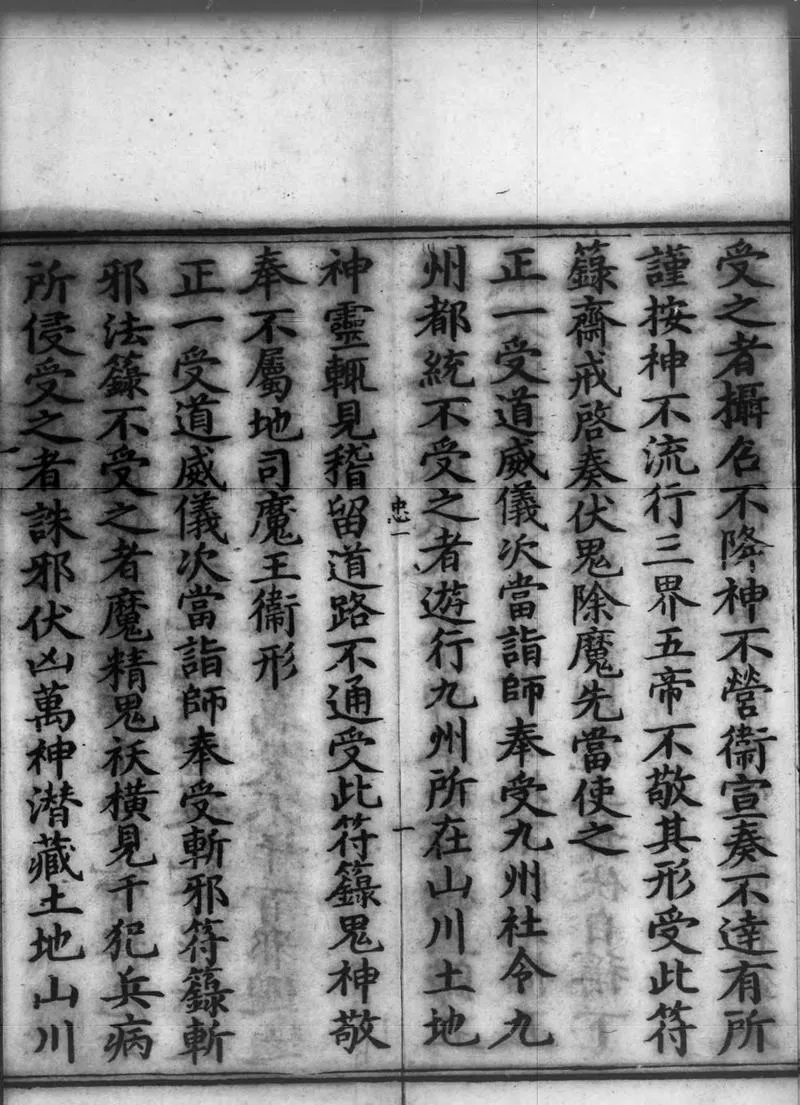 受之者攝召不降神不營衛宣奏不達有所
謹按神不流行三界五帝不敬其形受此符
籙齋戒啓奏伏鬼除魔先當使之
正一受道威儀次當詣師奉受九州社令九
州都統不受之者遊行九州所在山川土地
忠一
神靈輒見稽留道路不通受此符籙鬼神敬
奉不屬地司魔王衞形
正一受道威儀次當詣師奉受斬邪符籙斬
邪法籙不受之者魔精鬼祅橫見干犯兵病
所侵受之者誅邪伏凶萬神潜藏土地山川